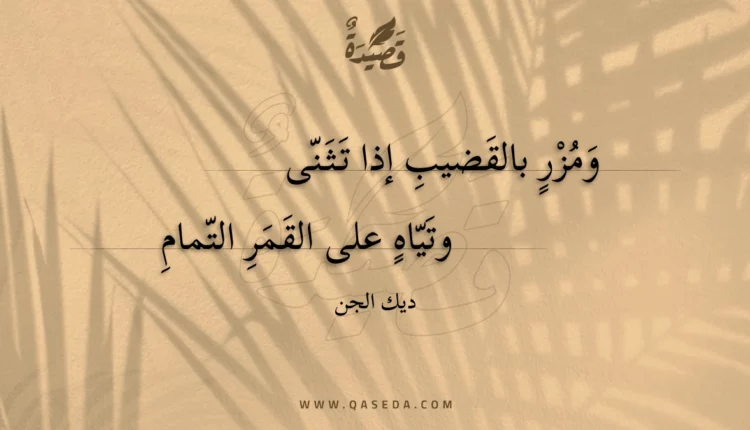 قَصِيدَةٌ
وَمُزْرٍ بالقَضيبِ إذا تَثَنّى
وتَيّاهٍ على القَمَرِ التّمامِ
ديك الجن
WWW.QASEDA.COM